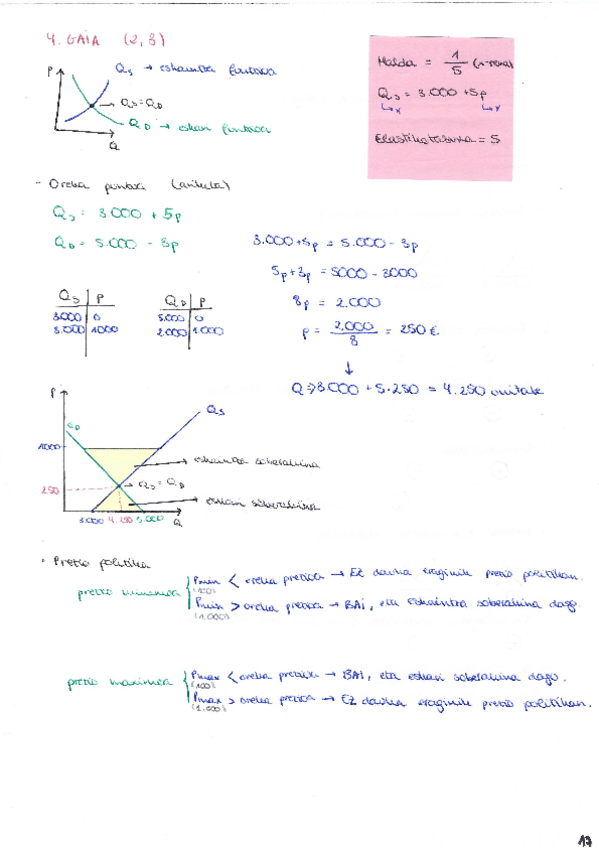 4. GAIA (2, 8)
P
Qs → eskaintza funtzioa
→ Qs = QD
QD → eskari funtzioa
Q
Malda = 1/5
Qs = 3.000 + 5p
↳ x ↳ y
Elastikotasuna = 5
- Oreka puntua (ariketa)
Qs = 3.000 + 5p
QD = 5.000 - 3p
3.000 + 5p = 5.000 - 3p
5p + 3p = 5000 - 3000
8p = 2.000
p = 2.000/8 = 250 €
↓
Q → 3.000 + 5·250 = 4.250 unitate
Qs | P
3.000 | 0
8.000 | 1000
QD | P
5.000 | 0
2.000 | 1.000
P
QD
Qs
1000
→ eskaintza soberakina
→ Qs = QD
250
→ eskari soberakina
3.000 4.250 5.000 Q
· Prezio politika
prezio minimoa
Pmin < oreka prezioa → Ez dauka eraginik prezio politikan.
(100)
Pmin > oreka prezioa → BAI, eta eskaintza soberakina dago.
(1.000)
prezio maximoa
Pmax < oreka prezioa → BAI, eta eskari soberakina dago.
(100)
Pmax > oreka prezioa → Ez dauka eraginik prezio politikan.
(1.000)
17